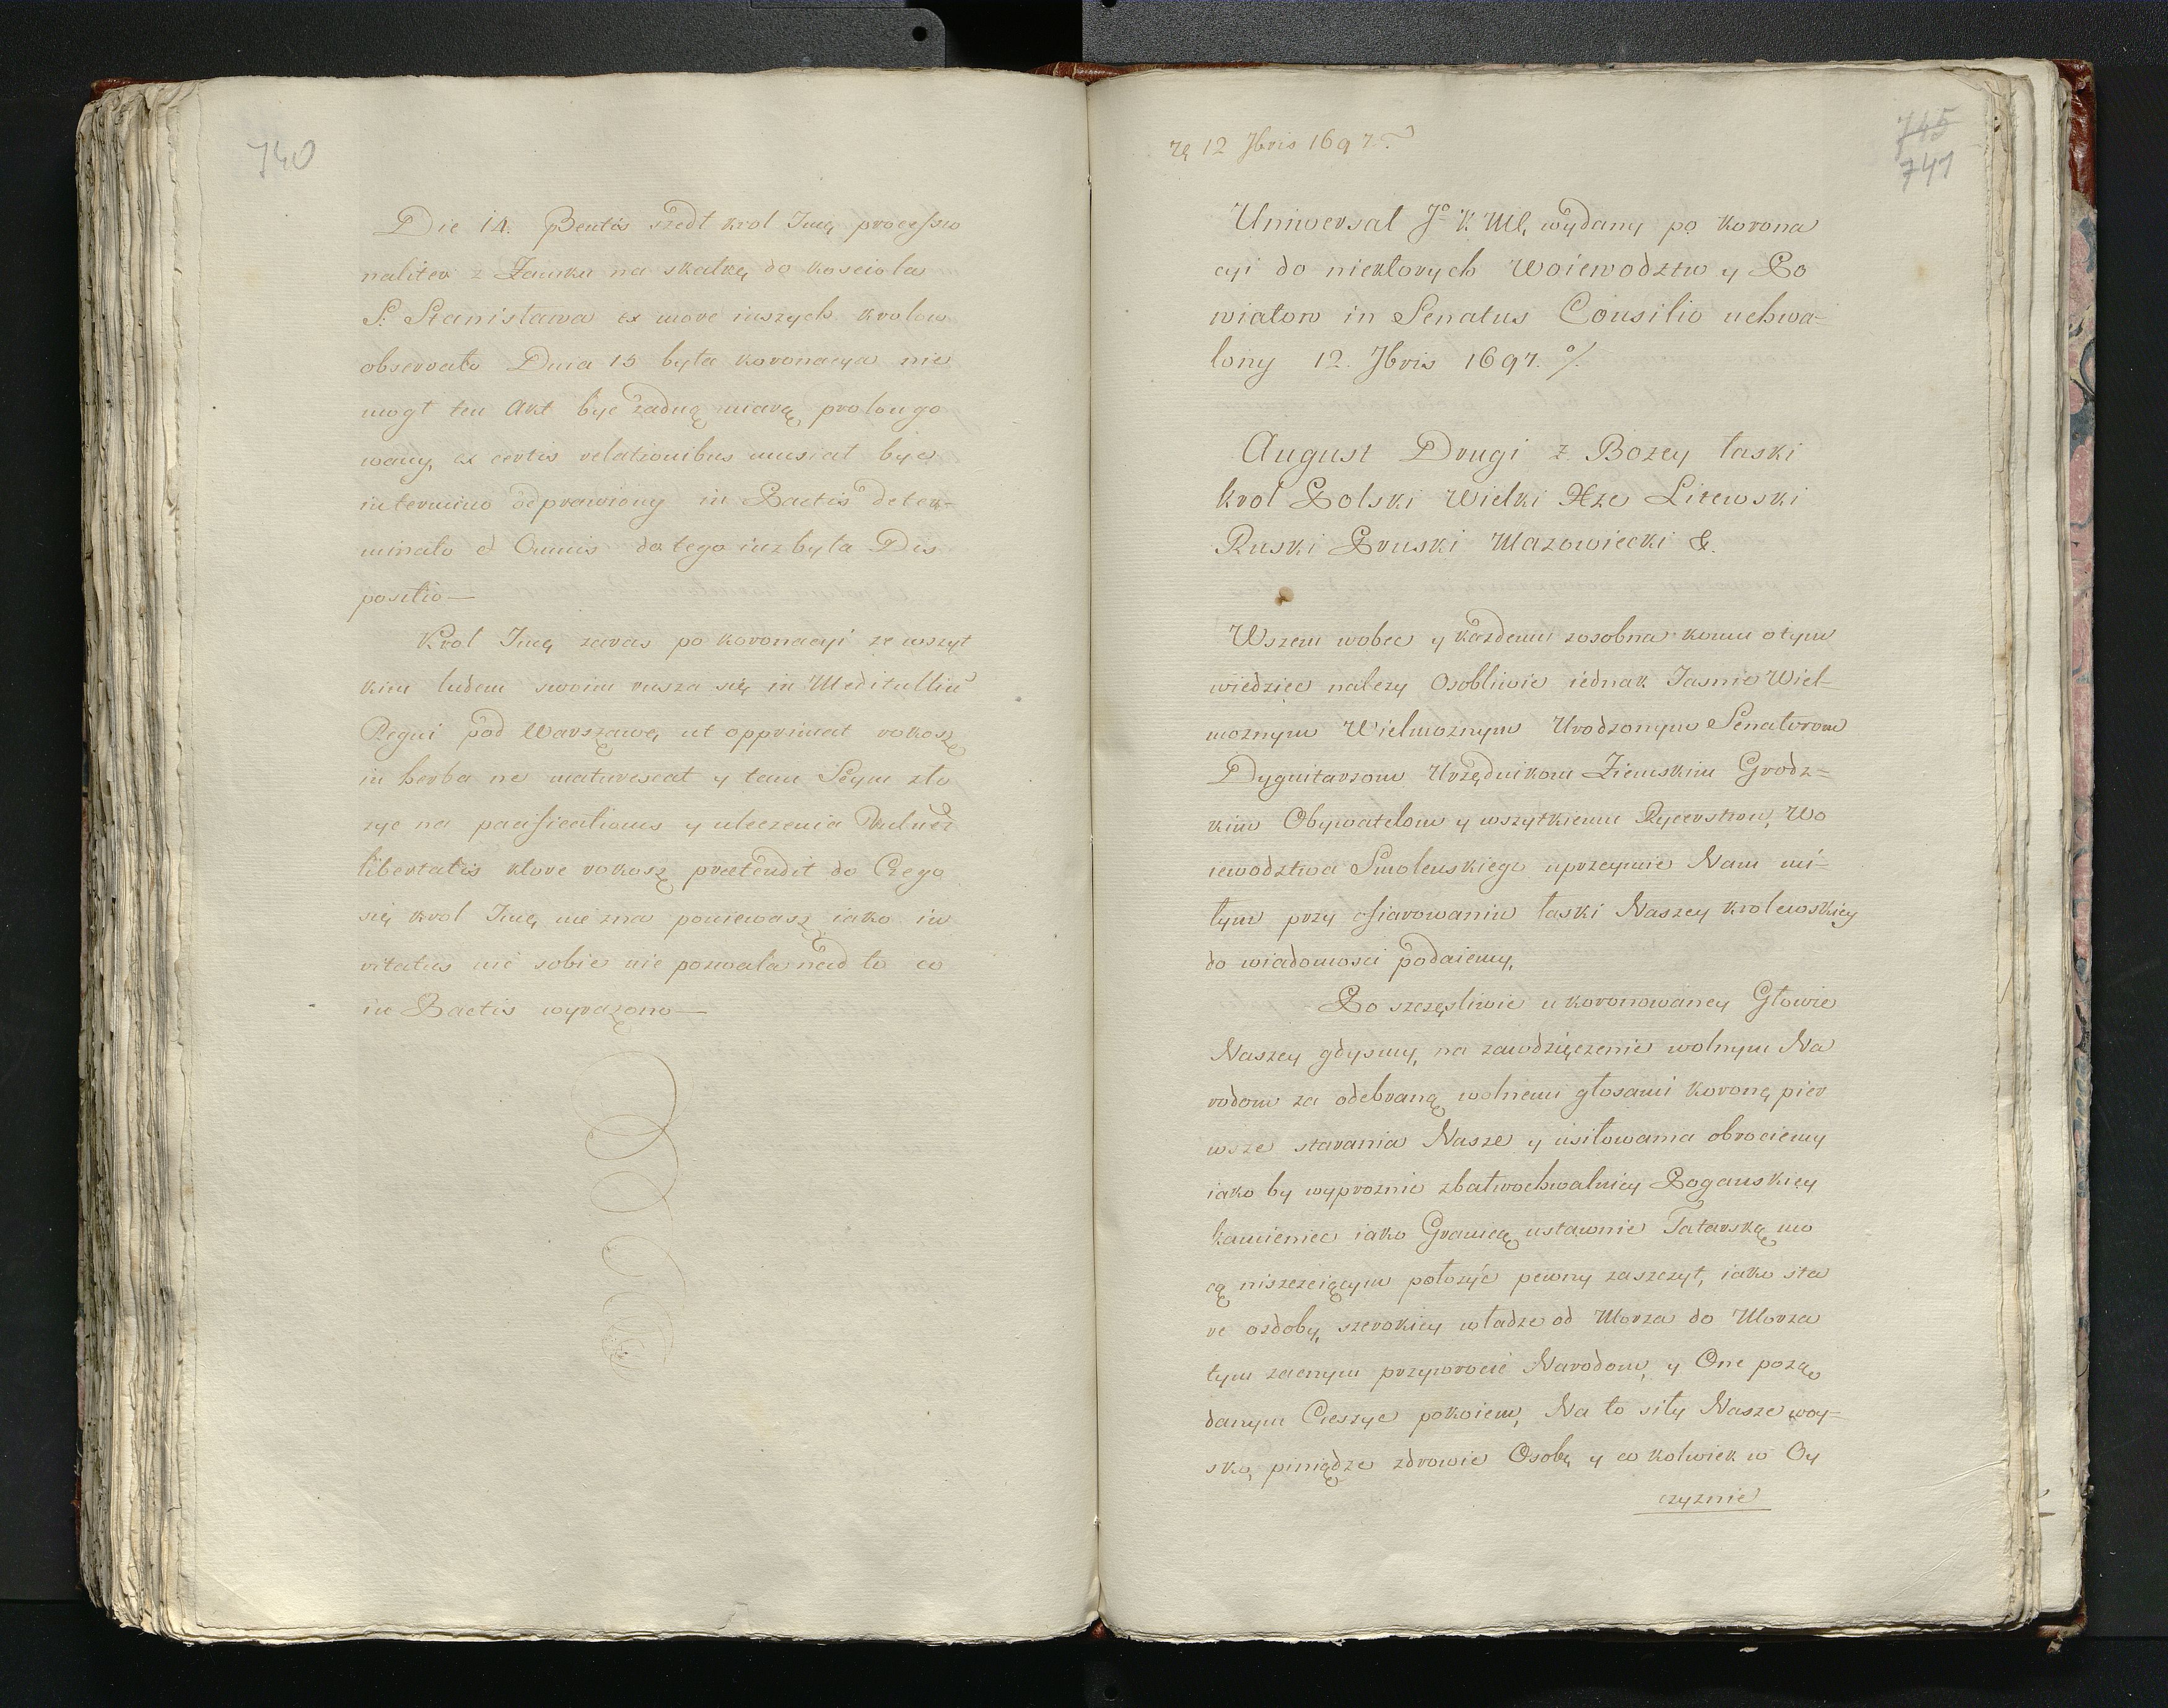 740
Die 14. Bentis szedł krol Jmę processio
naliter z Zamku na skałkę do kosciola
S. Stanisława ex more inszych krolow
observato Dnia 15 była koronacya nie
mogł ten Akt byc zadną miarą prolongo
wany, ex certis relationibus musiał byc
in termino odprawiony in Pactis deter=
minato et Omnis do tego iuz była Dis
positio—
Krol Jmę zaras po koronacyi ze wszyt
kim ludem swoim rusza się in Meditulliu
Regni pod Warszawę, ut opprimat rokosz
in herba ne maturescat y tam Seym zło
zyc na pacificationis y uleczenia Vulner
libertatis ktore rokosz praetendit do Czego
się krol Jmę nie zna poniewasz iako in
vitatus nic sobie nie pozwala nad to co
in Pactis wyrazono—
745
741
12 Jbris 1697.
Uniwersał Jº K Mł, wydany po korona
cyi do niektorych Woiewodztw y Po
wiatow in Senatus Consilio uchwa=
lony 12. Jbris 1697. %.
August Drugi z Bozey łaski
krol Polski Wielki Xze Litewski
Ruski Pruski Mazowiecki &.
Wszem wobec y kazdemu zosobna komu o tym
wiedziec nalezy Osobliwie iednak Jasnie Wiel=
moznym Wielmoznym Urodzonym Senatorom
Dygnitarzom Urzędnikom Ziemskim Grodz=
kim Obywatelom y wszytkiemu Rycerstwu, Wo
iewodztwa Smolenskiego uprzeymie Nam mi=
łym przy ofiarowaniu łaski Naszey krolewskiey
do wiadomosci podaiemy,
Po szczęsliwie ukoronowaney Głowie
Naszey gdysmy, na zawdzięczenie wolnym Na
rodom za odebraną wolnemi głosami koronę pier
wsze starania Nasze y usiłowania obrociemy
iako by wyproznic zbałwochwalnicy Poganskiey
kamieniec iako Granicę ustawnie Tatarską mo
cą niszczeiącym połozyc pewny zaszczyt, iako sta
re ozdoby, szerokiey władze od Morza do Morza
tym zacnym przywrocic Narodom, y One pozą
danym Cieszyc pokoiem, Na to siły Nasze woy=
sko, piniądze zdrowie Osobę y co kolwiek w Oy
czyznie